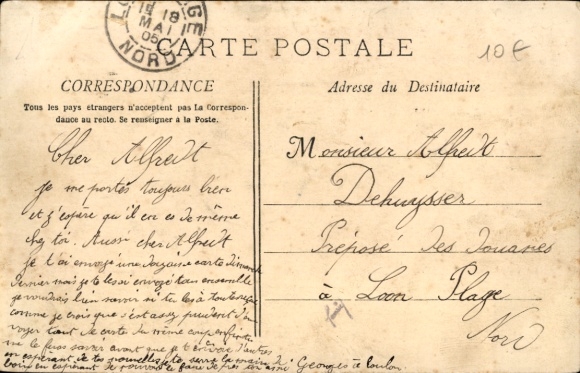 LOON-PLAGE
18
MAI
05
NORD
CARTE POSTALE
10€
CORRESPONDANCE
Tous les pays étrangers n'acceptent pas La Correspon-
dance au recto. Se renseigner à la Poste.
Adresse du Destinataire
Cher Alfredt
je me portes toujours bien
et j'éspère qu'il en es de même
chez toi. Aussi cher Alfredt
je t'ai envoyé une douzaine carte dimanch
dernier mais je te les ai envoyé tous ensemble
je voudrais bien savoir si tu les à toute reçue
comme je crois que s'est assez prudent d'en
voyer tant de carte du même coup enfin tu
me le feras savoir avant que je t'en envoie d'autres
en espérant de tes nouvelles je te serre la main de
loin en espérant de pouvoir le faire de près ton ami
Georges à Toulon.
Monsieur Alfredt
Dehuysser
Préposé des Douanes
à Loon Plage
Nord